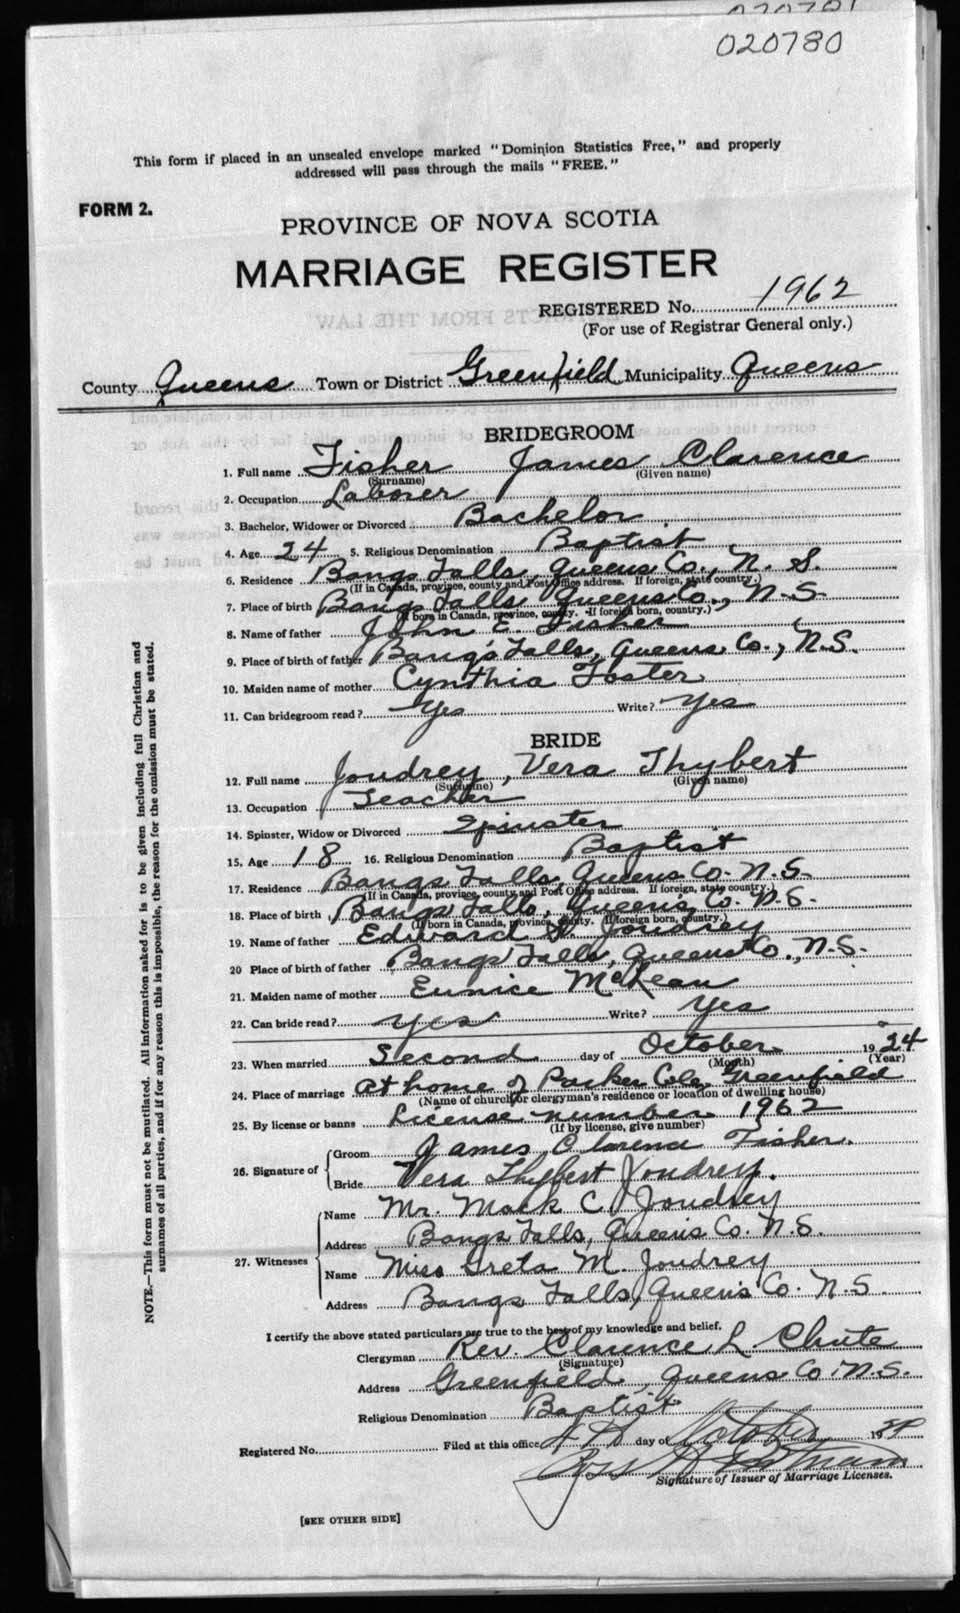 020780
This form if placed in an unsealed envelope marked "Dominion Statistics Free," and properly
addressed will pass through the mails "FREE."
FORM 2.
PROVINCE OF NOVA SCOTIA
MARRIAGE REGISTER
REGISTERED No. 1962
(For use of Registrar General only.)
County Queens Town or District Greenfield Municipality Queens
BRIDEGROOM
1. Full name Fisher James Clarence
(Surname) (Given name)
2. Occupation Laborer
3. Bachelor, Widower or Divorced Bachelor
4. Age 24 5. Religious Denomination Baptist
6. Residence Bangs Falls, Queens Co., N. S.
(If in Canada, province, county and Post Office address. If foreign, state country.)
7. Place of birth Bangs Falls Queens Co., N.S.
(If born in Canada, province, county. If foreign born, country.)
8. Name of father John E. Fisher
9. Place of birth of father Bang's Falls, Queens Co., N.S.
10. Maiden name of mother Cynthia Foster
11. Can bridegroom read? Yes Write? Yes
BRIDE
12. Full name Joudrey, Vera Thybert
(Surname) (Given name)
13. Occupation Teacher
14. Spinster, Widow or Divorced Spinster
15. Age 18 16. Religious Denomination Baptist
17. Residence Bangs Falls, Queens Co. N.S.
(If in Canada, province, county and Post Office address. If foreign, state country.)
18. Place of birth Bangs Falls, Queens Co. N.S.
(If born in Canada, province, county. If foreign born, country.)
19. Name of father Edward Joudrey
20 Place of birth of father Bangs Falls, Queens Co., N.S.
21. Maiden name of mother Eunice McLean
22. Can bride read? Yes Write? Yes
23. When married Second day of October 1924
(Month) (Year)
24. Place of marriage At home of Parker Cole, Greenfield
(Name of church or clergyman's residence or location of dwelling house)
25. By license or banns License number 1962
(If by license, give number)
26. Signature of
Groom James Clarence Fisher.
Bride Vera Thybert Joudrey.
27. Witnesses
Name Mr. Mack C. Joudrey
Address Bangs Falls, Queens Co. N.S.
Name Miss Greta M. Joudrey
Address Bangs Falls, Queen's Co. N.S.
I certify the above stated particulars are true to the best of my knowledge and belief.
Clergyman Rev. Clarence L. Chute
(Signature)
Address Greenfield, Queens Co. N.S.
Religious Denomination Baptist
Registered No. Filed at this office 4th day of October 19
Signature of Issuer of Marriage Licenses.
[SEE OTHER SIDE]
NOTE.—This form must not be mutilated. All information asked for is to be given including full Christian and
surnames of all parties, and if for any reason this is impossible, the reason for the omission must be stated.